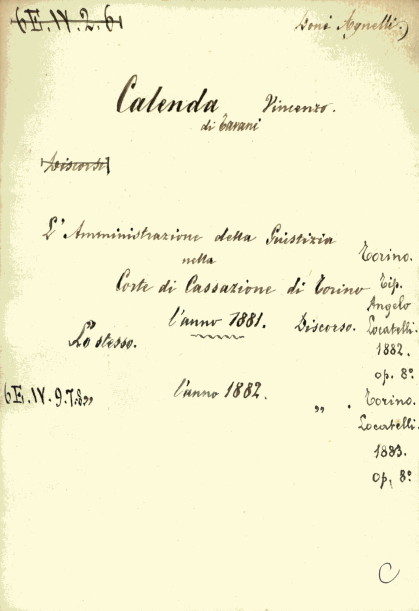 6E.IV.2.6
Doni Agnelli.)
Calenda Vincenzo.
di Tavani
[Discorsi]
L'Amministrazione della Giustizia
nella
Corte di Cassazione di Torino
l'anno 1881. Discorso.
Torino.
Tip.
Angelo
Locatelli.
1882.
op. 8º
Lo stesso.
6E.IV.9.7.8"
l'anno 1882. " .
Torino.
Locatelli.
1883.
Op. 8º
C